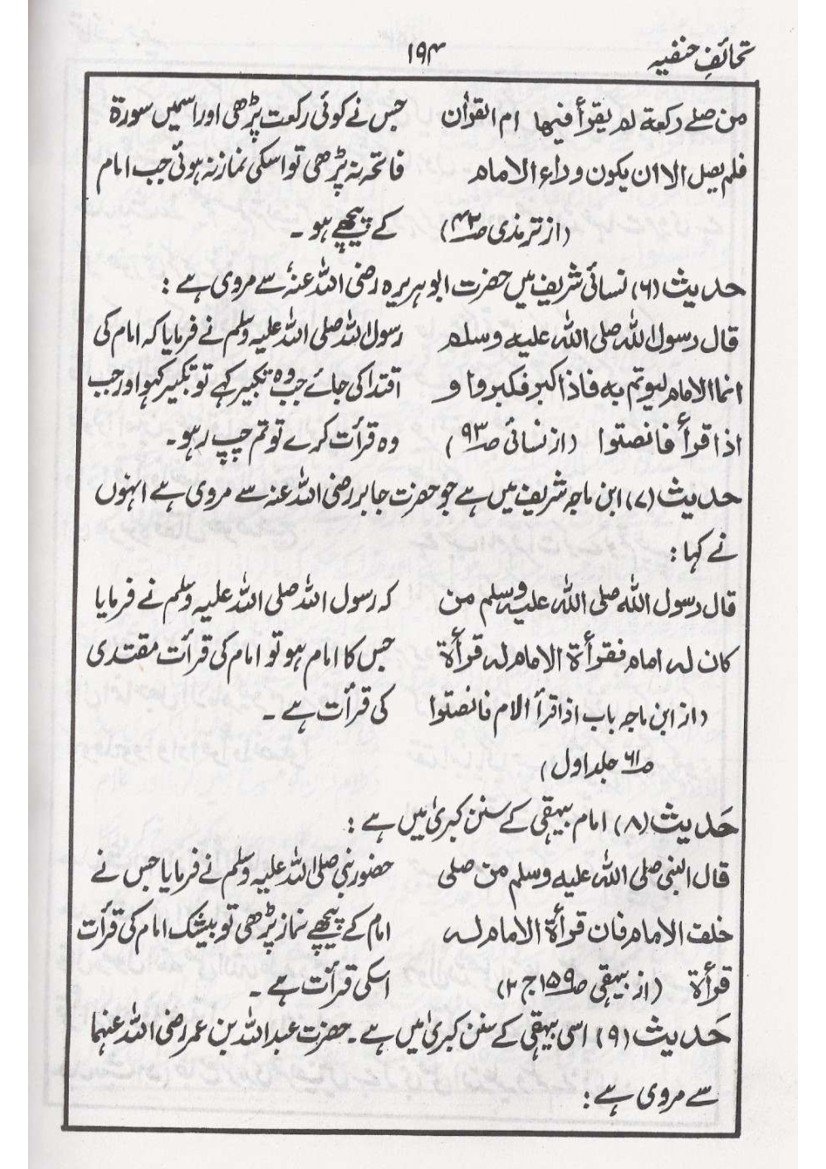 تحائفِ حنفیہ ۱۹۴
من صلے رکعۃ لم یقرأ فیہا ام القرآن جس نے کوئی رکعت پڑھی اور اسمیں سورۃ
فلم یصل الا ان یکون وراء الامام فاتحہ نہ پڑھی تو اسکی نماز نہ ہوئی جب امام
(از ترمذی صـ۴۲) کے پیچھے ہو ۔
حدیث (۶) نسائی شریف میں حضرت ابوہریرہ رضی اللہ عنہٗ سے مروی ہے :
قال رسول اللہ صلی اللہ علیہ وسلم رسول اللہ صلی اللہ علیہ وسلم نے فرمایا کہ امام کی
انما الامام لیوتم بہ فاذا کبر فکبروا و اقتدا کی جائے جب وہ تکبیر کہے تو تکبیر کہو اور جب
اذا قرأ فانصتوا (از نسائی صـ۹۳) وہ قرأت کرے تو تم چپ رہو۔
حدیث (۷) ابن ماجہ شریف میں ہے جو حضرت جابر رضی اللہ عنہ سے مروی ہے انہوں
نے کہا :
قال رسول اللہ صلی اللہ علیہ وسلم من کہ رسول اللہ صلی اللہ علیہ وسلم نے فرمایا
کان لہ امام فقرأۃ الامام لہ قرأۃ جس کا امام ہو تو امام کی قرأت مقتدی
(از ابن ماجہ باب اذا قرأ الام فانصتوا کی قرأت ہے ۔
صـ۶۱ جلد اول)
حَدیث (۸) امام بیہقی کے سنن کبریٰ میں ہے :
قال النبی صلی اللہ علیہ وسلم من صلی حضور نبی صلی اللہ علیہ وسلم نے فرمایا جس نے
خلف الامام فان قرأۃ الامام لہ امام کے پیچھے نماز پڑھی تو بیشک امام کی قرأت
قرأۃ (از بیہقی صـ۱۵۹ ج ۲) اسکی قرأت ہے ۔
حَدیث (۹) اسی بیہقی کے سنن کبریٰ میں ہے ۔ حضرت عبداللہ بن عمر رضی اللہ عنہما
سے مروی ہے :